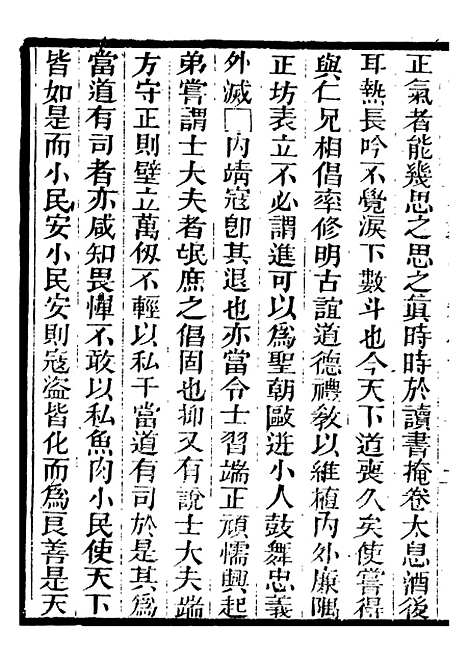 正氣者能幾思之思之眞時時於讀書掩卷太息酒後
耳熱長吟不覺淚下數斗也今天下道喪久矣使嘗得
與仁兄相倡率修明古誼道德禮敎以維植內外廉隅
正坊表立不必謂進可以爲聖朝毆逆小人鼓舞忠義
外滅□內靖寇卽其退也亦當令士習端正頑懦興起
弟嘗謂士大夫者氓庶之倡固也抑又有說士大夫端
方守正則壁立萬仭不輕以私干當道有司於是其爲
當道有司者亦咸知畏憚不敢以私魚肉小民使天下
皆如是而小民安小民安則寇盜皆化而爲良善是天